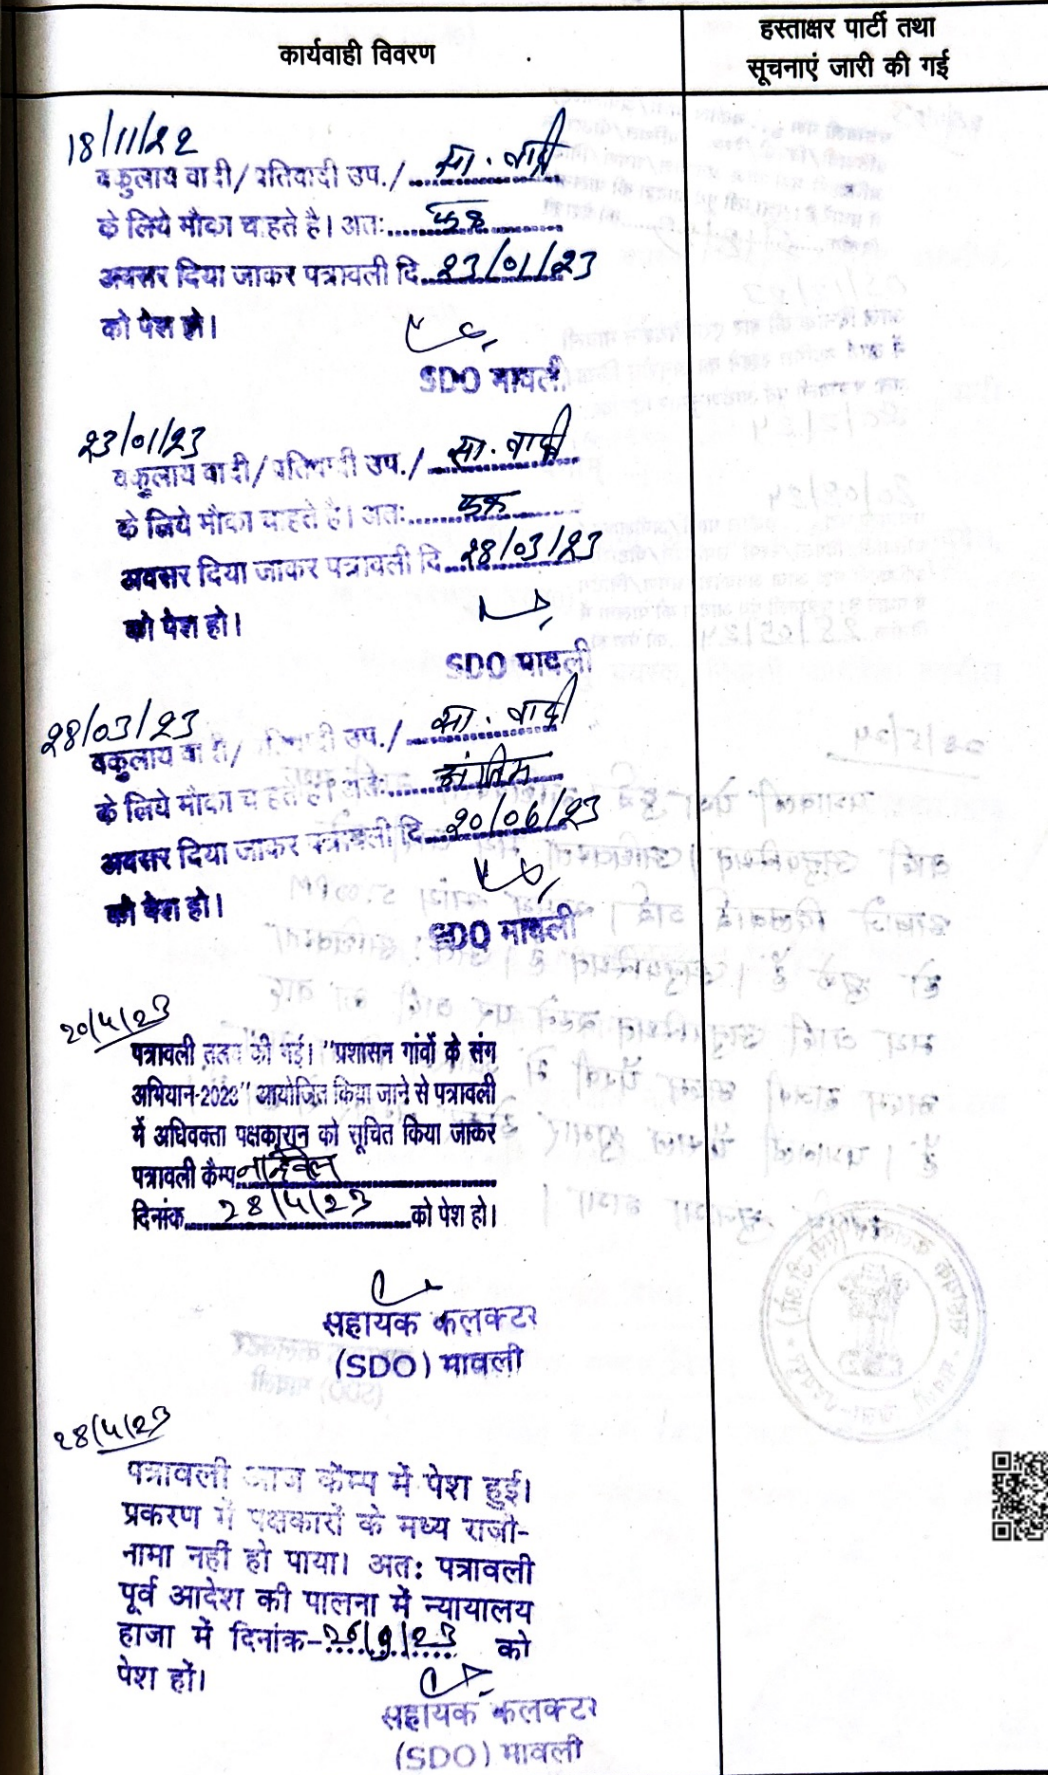 कार्यवाही विवरण
हस्ताक्षर पार्टी तथा
सूचनाएं जारी की गई
18/11/22
वकुलाय वादी/ प्रतिवादी उप./ सा. वादी
के लिये मौका चाहते है। अतः......
अवसर दिया जाकर पत्रावली दि. 23/01/23
को पेश हो।
SDO मावली
23/01/23
वकुलाय वादी/ प्रतिवादी उप./ सा. वादी
के लिये मौका चाहते है। अतः......
अवसर दिया जाकर पत्रावली दि. 28/03/23
को पेश हो।
SDO मावली
28/03/23
वकुलाय वादी/ प्रतिवादी उप./ सा. वादी
के लिये मौका चाहते है। अतः...... अंतिम
अवसर दिया जाकर पत्रावली दि. 20/06/23
को पेश हो।
SDO मावली
20/4/23
पत्रावली तलब की गई। "प्रशासन गांवों के संग
अभियान-2023" आयोजित किया जाने से पत्रावली
में अधिवक्ता पक्षकारान को सूचित किया जाकर
पत्रावली कैम्प
दिनांक 28/4/23 को पेश हो।
सहायक कलक्टर
(SDO) मावली
28/4/23
पत्रावली आज कैम्प में पेश हुई।
प्रकरण में पक्षकारों के मध्य राजी-
नामा नहीं हो पाया। अतः पत्रावली
पूर्व आदेश की पालना में न्यायालय
हाजा में दिनांक- को
पेश हों।
सहायक कलक्टर
(SDO) मावली